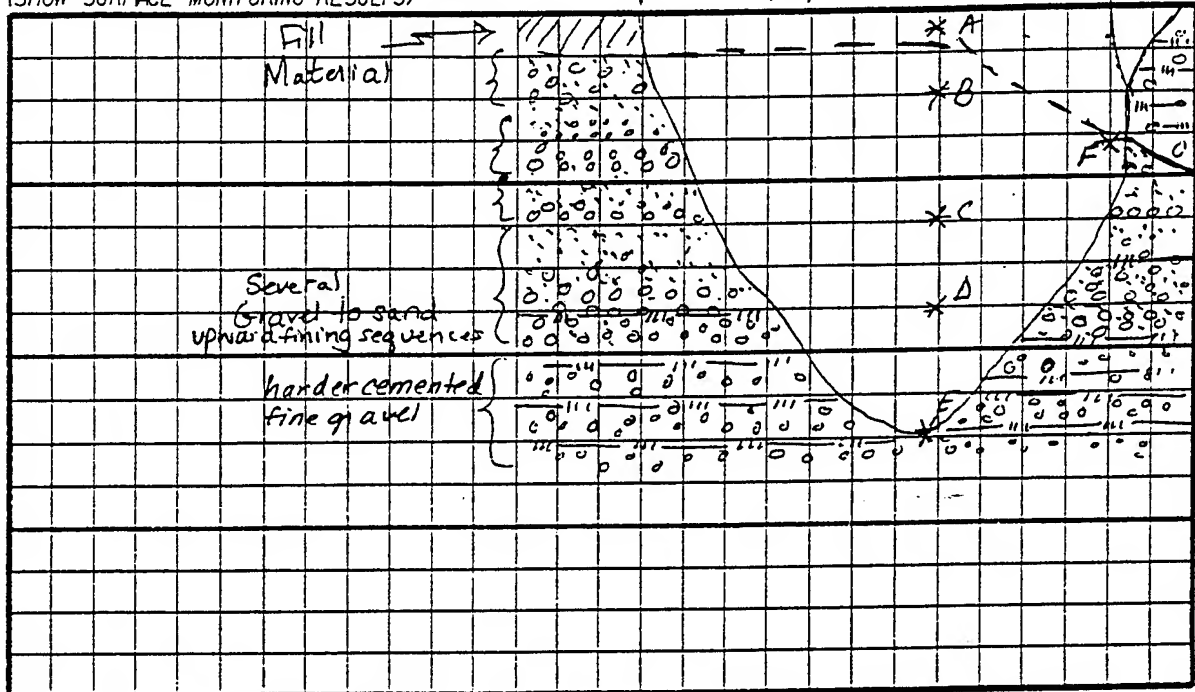 (SHOW SURFACE MONITORING RESULTS)
Fill
Material
A
B
F
C
D
Several
Gravel to sand
upward fining sequences
harder cemented
fine gravel
E